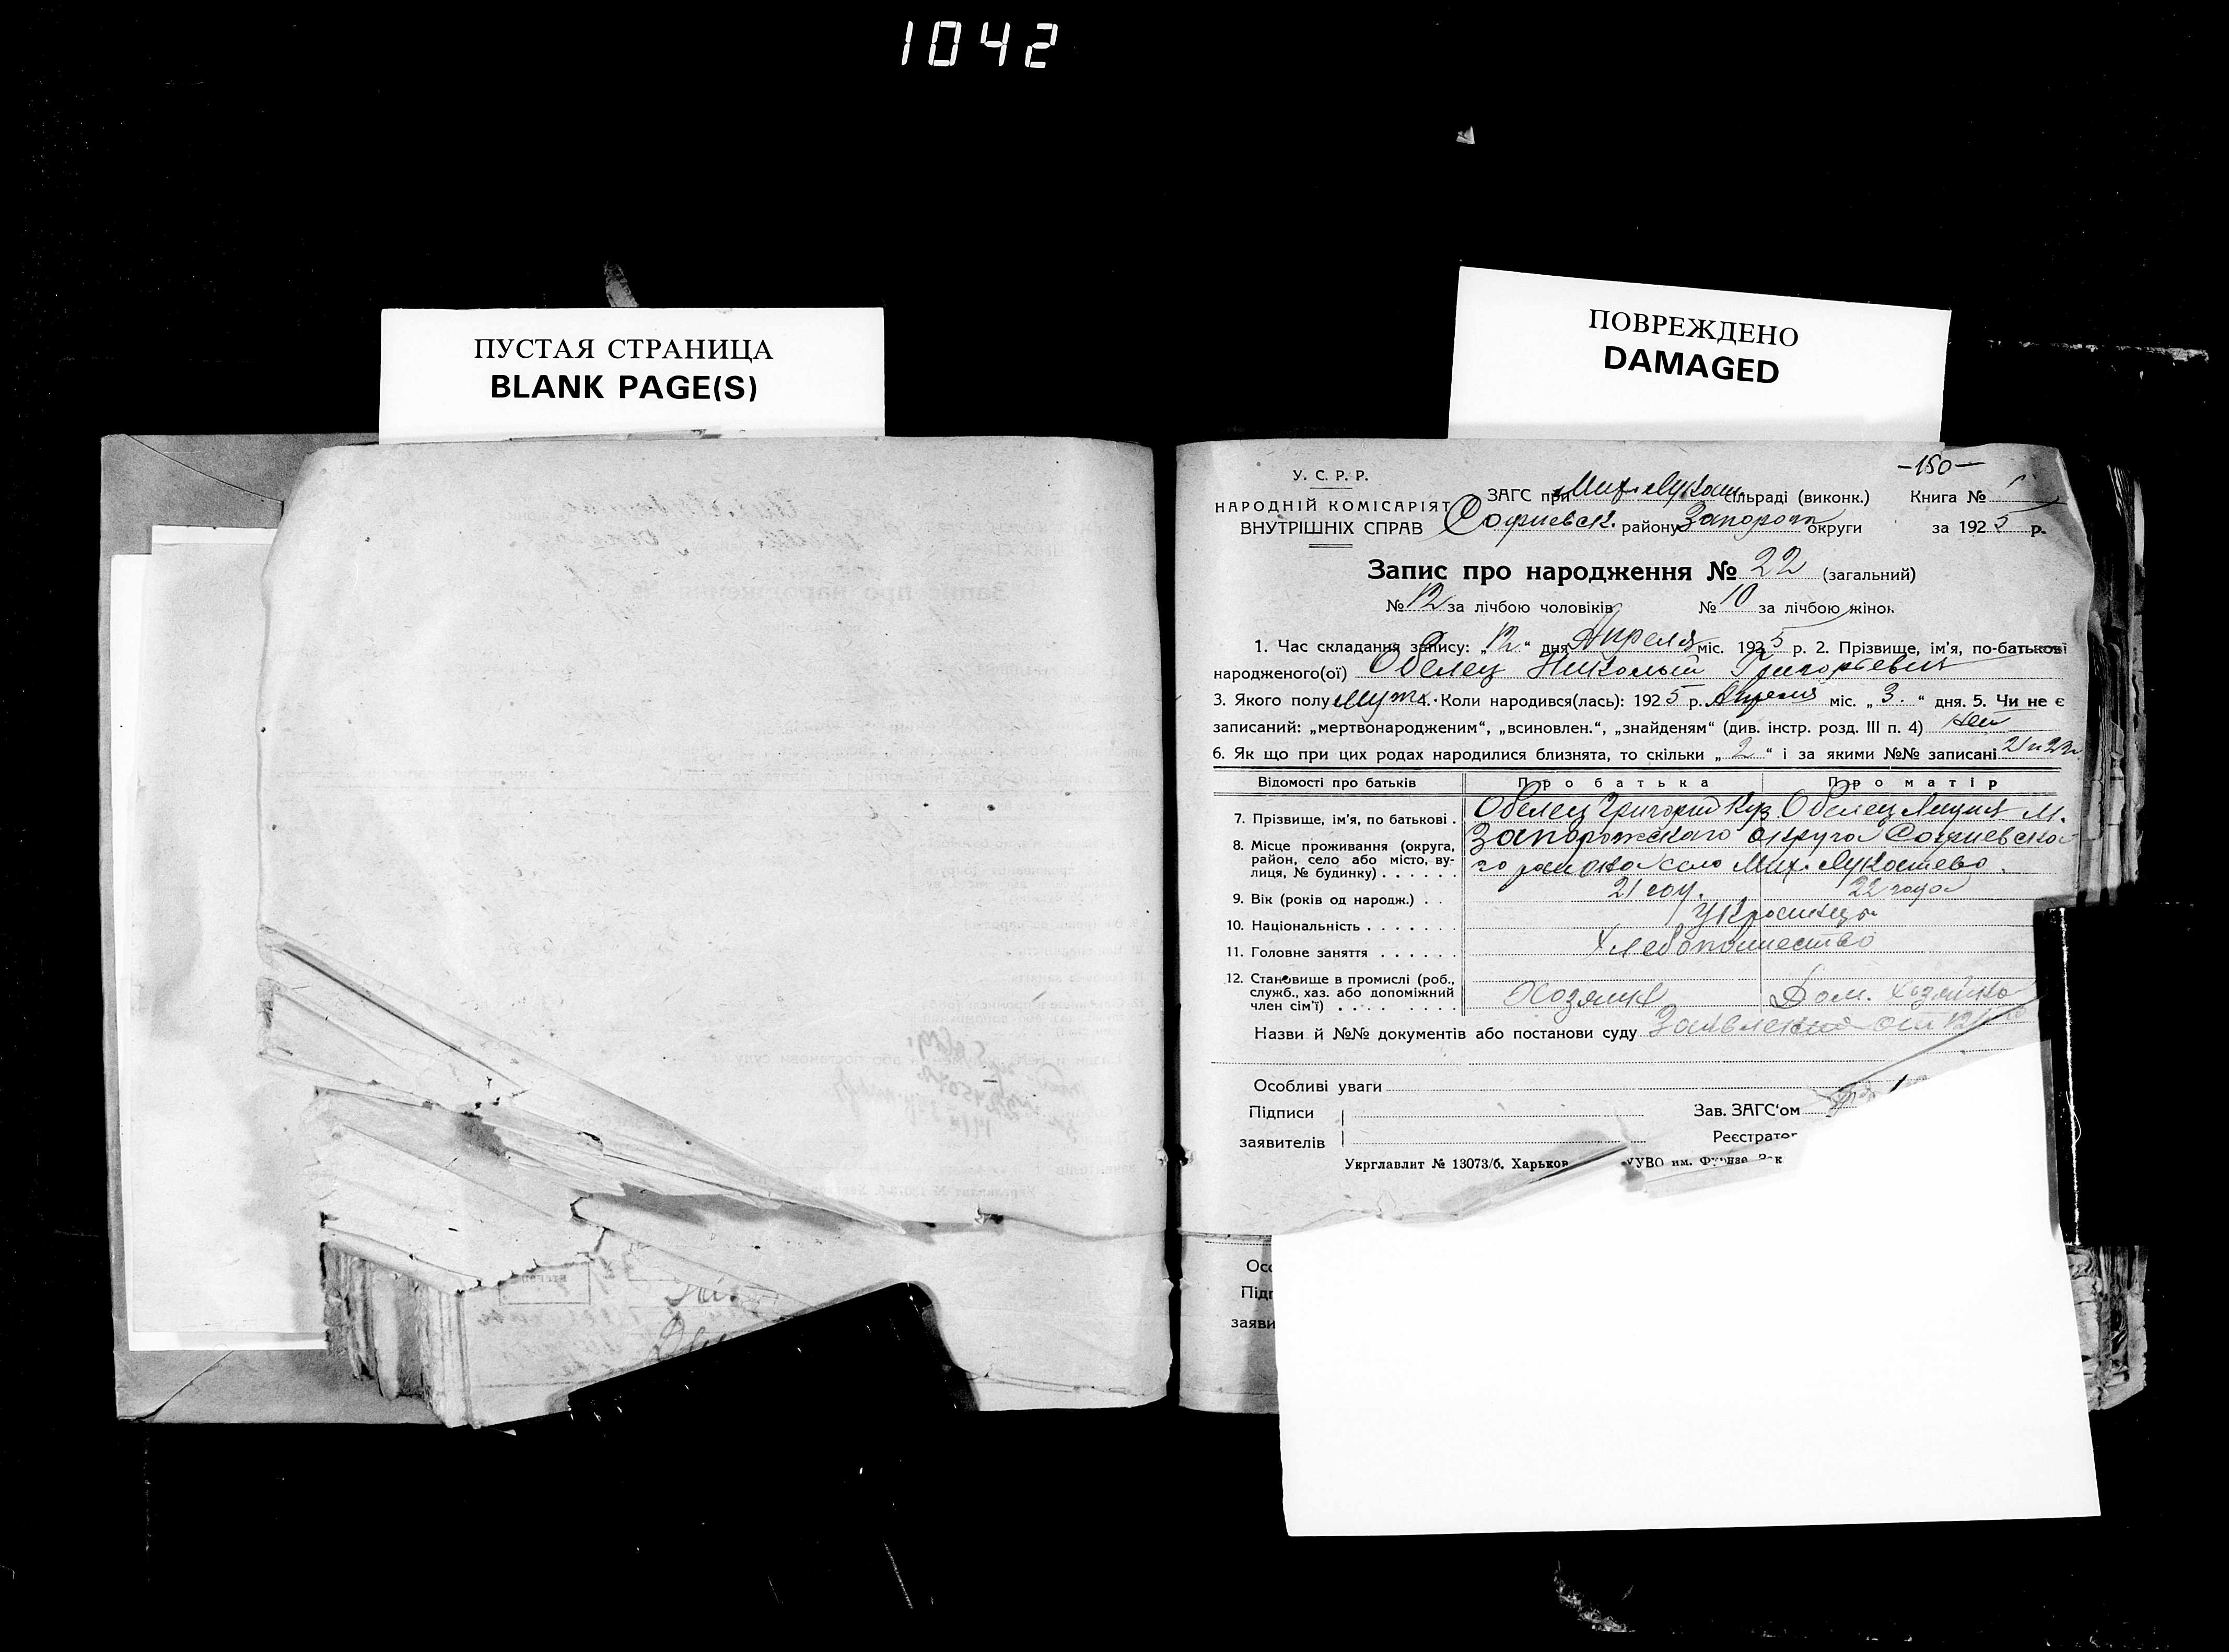 1042
ПУСТАЯ СТРАНИЦА
BLANK PAGE(S)
ПОВРЕЖДЕНО
DAMAGED
-150-
У. С. Р. Р.
НАРОДНІЙ КОМІСАРІЯТ
ВНУТРІШНІХ СПРАВ
ЗАГС при Мих. Лукаш. сільраді (виконк.) Книга № 1
Софиевск. району Запорож округи за 1925 р.
Запис про народження № 22 (загальний)
№ 12 за лічбою чоловіків № 10 за лічбою жінок
1. Час складання запису: „12“ дня Апреля міс. 1925 р. 2. Прізвище, ім'я, по-батькові
народженого(ої) Обелец Николай Григорьевич
3. Якого полу Муж. 4. Коли народився(лась): 1925 р. Апреля міс. „3.“ дня. 5. Чи не є
записаний: „мертвонародженим“, „всиновлен.“, „знайденям“ (див. інстр. розд. III п. 4)
6. Як що при цих родах народилися близнята, то скільки „2“ і за якими №№ записані 21 и 22
Відомості про батьків Про батька Про матір
7. Прізвище, ім'я, по батькові . Обелец Григорий Куз Обелец М.
8. Місце проживання (округа, район, село або місто, вулиця, № будинку) . . . . . . Запорожского округа Софиевско-
го района село Мих. Лукашево.
9. Вік (років од народж.) . . 21 год. 22 года
10. Національність . . . . . . . Украинцы
11. Головне заняття . . . . . . Хлебопашество
12. Становище в промислі (роб., служб., хаз. або допоміжний член сім'ї) . . . . . . . . Хозяин Дом. хозяйка
Назви й №№ документів або постанови суду Заявление от 12
Особливі уваги
Підписи
заявителів
Зав. ЗАГС'ом
Реєстратор
Укрглавлит № 13073/б. Харьков УУВО им. Фрунзе Зак
Осо
Підп
заяви